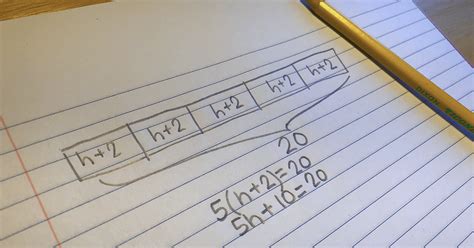 h+2 h+2 h+2 h+2 h+2
20
5(h+2)=20
5h+10=20